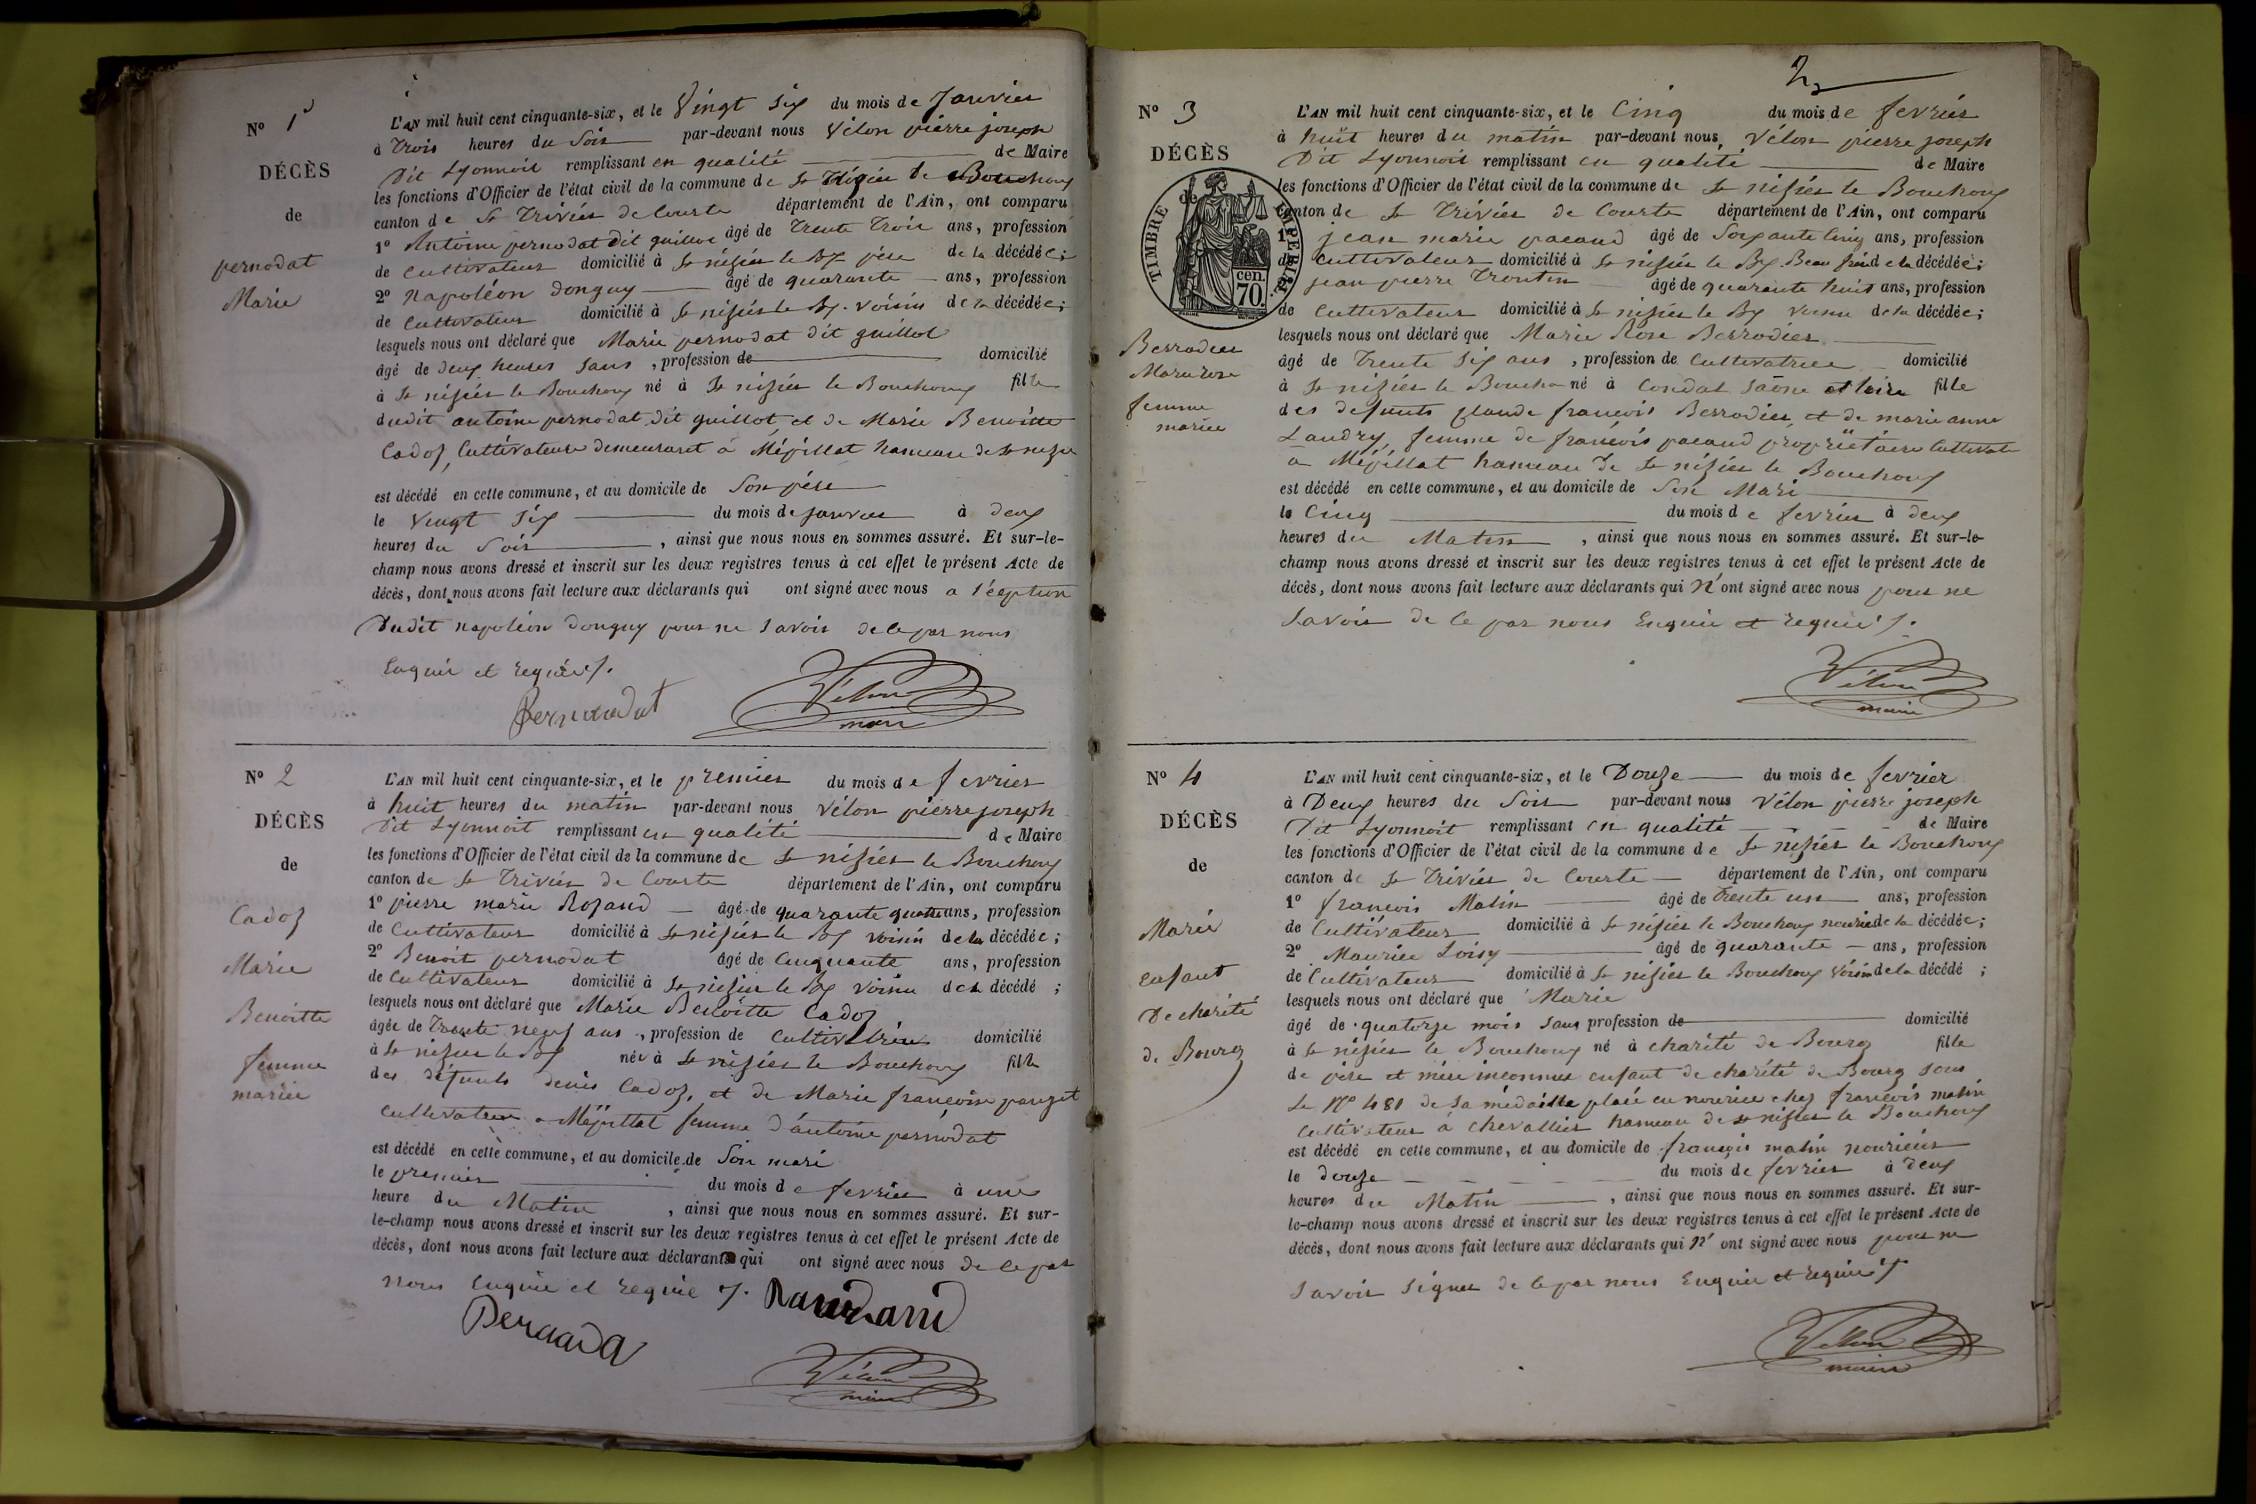 N° 1
DÉCÈS
de
pernodat
Marie
L'AN mil huit cent cinquante-six, et le Vingt Six du mois de Janvier
à Trois heures du Soir par-devant nous Vélon pierre joseph
Dit Lyonnoit remplissant en qualité de Maire
les fonctions d'Officier de l'état civil de la commune de St Nizier le Bouchoux
canton de St Trivier de Courte département de l'Ain, ont comparu
1° Antoine pernodat Dit guillot âgé de Trente Trois ans, profession
de Cultivateur domicilié à St nizier le Bx père de la décédée;
2° Napoléon Donguy âgé de quarante ans, profession
de Cultivateur domicilié à St nizier le Bx. voisin de la décédée;
lesquels nous ont déclaré que Marie pernodat dit guillot
âgé de deux heures Sans, profession de domicilié
à St nizier le Bouchoux né à St nizier le Bouchoux fille
dudit antoine pernodat dit guillot, et de Marie Benoitte
Cadoz, Cultivateurs demeurant à Mépillat hameau de St nizier
est décédé en cette commune, et au domicile de Son père
le Vingt Six du mois de janvier à deux
heures du Soir, ainsi que nous nous en sommes assuré. Et sur-le-
champ nous avons dressé et inscrit sur les deux registres tenus à cet effet le présent Acte de
décès, dont nous avons fait lecture aux déclarants qui ont signé avec nous a l'éception
Dudit napoléon donguy pour ne Savoir de ce par nous
Enquie et requie /.
Pernaudat
Vélon
maire
N° 2
DÉCÈS
de
Cadoz
Marie
Benoitte
femme
mariée
L'AN mil huit cent cinquante-six, et le premier du mois de fevrier
à huit heures du matin par-devant nous Vélon pierre joseph
Dit Lyonnoit remplissant en qualité de Maire
les fonctions d'Officier de l'état civil de la commune de St nizier le Bouchoux
canton de St Trivier de Courte département de l'Ain, ont comparu
1° pierre marie Rozand âgé de quarante quatre ans, profession
de Cultivateur domicilié à St nizier le Bx voisin de la décédée;
2° Benoit pernodat âgé de Cinquante ans, profession
de Cultivateur domicilié à St nizier le Bx voisin de la décédé;
lesquels nous ont déclaré que Marie Benoitte Cadoz
âgée de Trente neuf ans, profession de Cultivatrice domicilié
à St nizier le Bx née à St nizier le Bouchoux fille
des défunts denis Cadoz, et de Marie françoise pauget
Cultivateur a Mépillat femme d'antoine pernodat
est décédé en cette commune, et au domicile de Son mari
le premier du mois de fevrier à une
heure du Matin, ainsi que nous nous en sommes assuré. Et sur-
le-champ nous avons dressé et inscrit sur les deux registres tenus à cet effet le présent Acte de
décès, dont nous avons fait lecture aux déclarants qui ont signé avec nous de ce par
nous Enquie et requie /.
Vélon
maire
2
N° 3
DÉCÈS
de
TIMBRE IMPERIAL
cen.
70.
Berrodier
Marie rose
femme
mariée
L'AN mil huit cent cinquante-six, et le Cinq du mois de fevrier
à huit heures du matin par-devant nous, Vélon pierre joseph
Dit Lyonnoit remplissant en qualité de Maire
les fonctions d'Officier de l'état civil de la commune de St nizier le Bouchoux
canton de St Trivier de Courte département de l'Ain, ont comparu
1° jean marie pacaud âgé de Soixante Cinq ans, profession
de Cultivateur domicilié à St nizier le Bx. Beau frère de la décédée;
jean pierre Trontin âgé de quarante huit ans, profession
de Cultivateur domicilié à St nizier le Bx voisin de la décédée;
lesquels nous ont déclaré que Marie Rose Berrodier
âgé de Trente Six ans, profession de Cultivatrice domicilié
à St nizier le Boucho né à Condat Saône et loire fille
des defunts Claude françois Berrodier, et de marie anne
Landry, femme de françois pacaud propriétaire Cultivate
a Mépillat hameau de St nizier le Bouchoux
est décédé en cette commune, et au domicile de Son Mari
le Cinq du mois de fevrier à deux
heures du Matin, ainsi que nous nous en sommes assuré. Et sur-le-
champ nous avons dressé et inscrit sur les deux registres tenus à cet effet le présent Acte de
décès, dont nous avons fait lecture aux déclarants qui N'ont signé avec nous pour ne
Savoir de ce par nous Enquie et requie /.
Vélon
maire
N° 4
DÉCÈS
de
Marie
enfant
De charité
de Bourg
L'AN mil huit cent cinquante-six, et le Douze du mois de fevrier
à Deux heures du Soir par-devant nous Vélon pierre joseph
Dit Lyonnoit remplissant en qualité de Maire
les fonctions d'Officier de l'état civil de la commune de St nizier le Bouchoux
canton de St Trivier de Courte département de l'Ain, ont comparu
1° françois Matin âgé de Trente un ans, profession
de Cultivateur domicilié à St nizier le Bouchoux nourrie de la décédée;
2° Maurice Loisy âgé de quarante ans, profession
de Cultivateur domicilié à St nizier le Bouchoux Voisin de la décédé;
lesquels nous ont déclaré que Marie
âgé de quatorze mois Sans profession de domicilié
à St nizier le Bouchoux né à charité de Bourg fille
de père et mère inconnus enfant de charité de Bourg sous
Le N° 481 de Sa médaille placé en nourice chez françois matin
Cultivateur à Chevallier hameau de St nizier le Bouchoux
est décédé en cette commune, et au domicile de françois matin nouricier
le douze du mois de fevrier à deux
heures du Matin, ainsi que nous nous en sommes assuré. Et sur-
le-champ nous avons dressé et inscrit sur les deux registres tenus à cet effet le présent Acte de
décès, dont nous avons fait lecture aux déclarants qui N'ont signé avec nous pour ne
Savoir Signer de ce par nous Enquie et requie /.
Vélon
maire